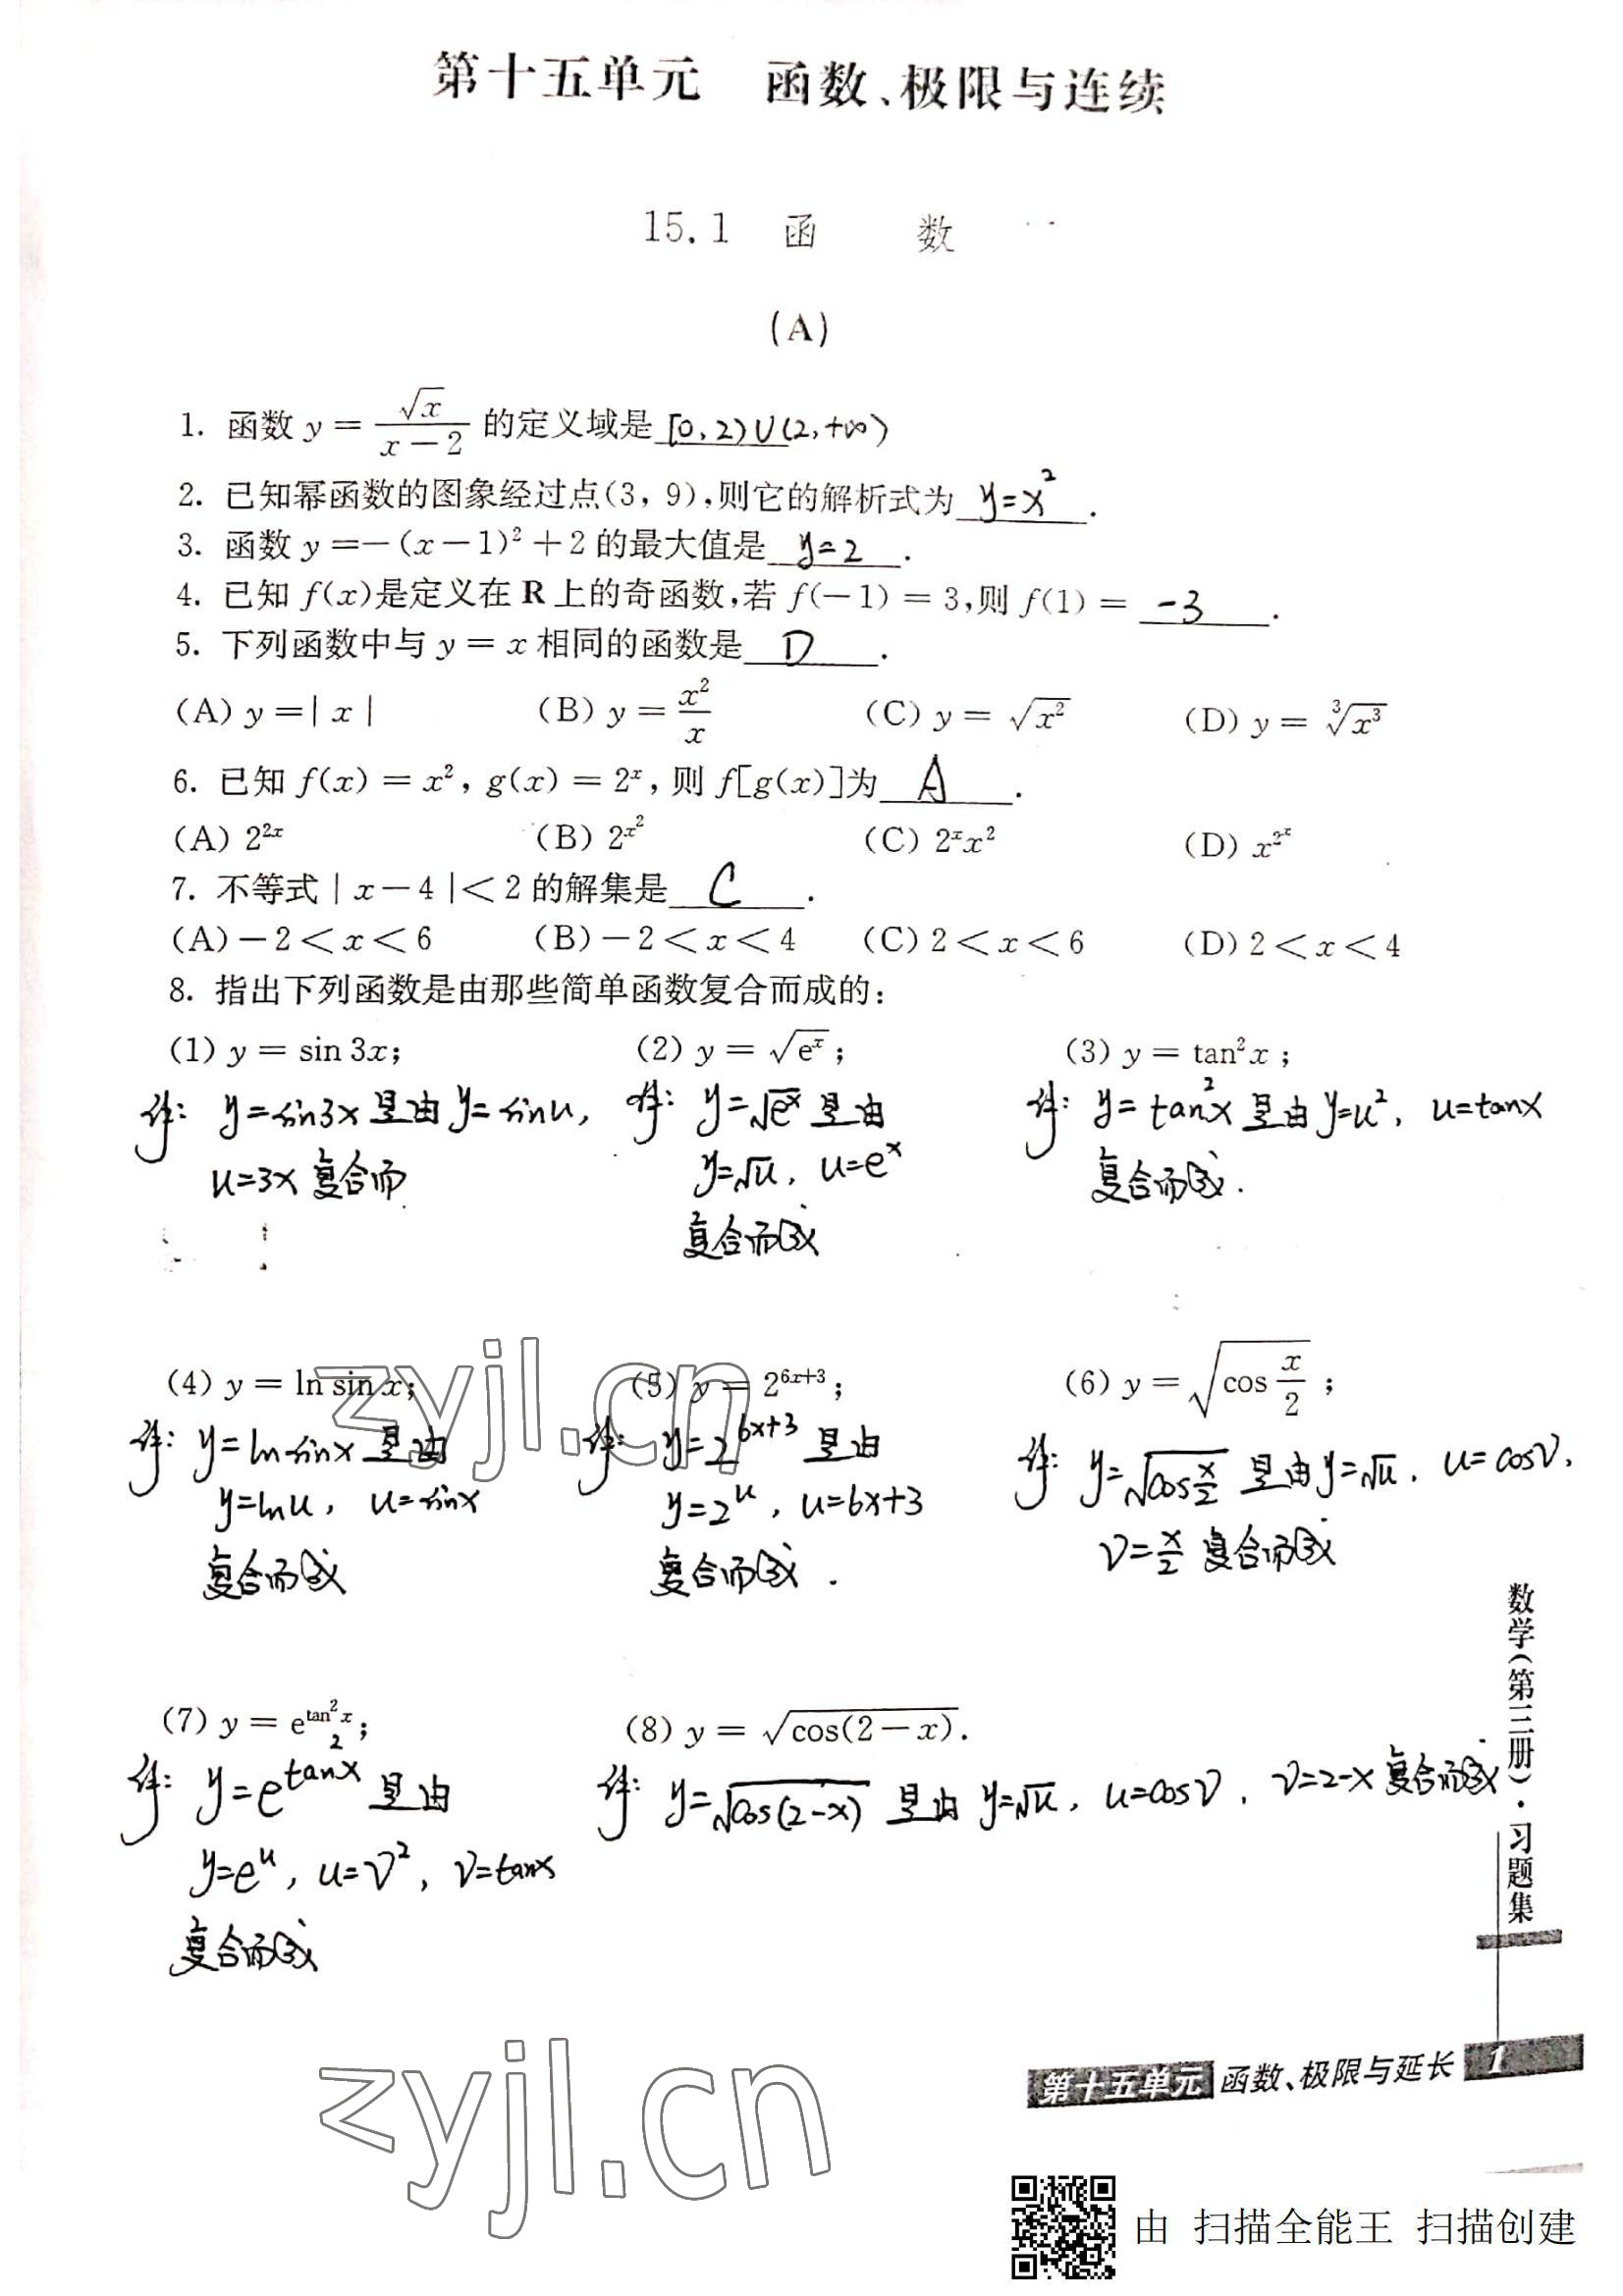 第十五单元 函数、极限与连续
15.1 函 数
(A)
1. 函数 y = √x/(x-2) 的定义域是 [0,2)∪(2,+∞)
2. 已知幂函数的图象经过点(3, 9),则它的解析式为 y=x² .
3. 函数 y =-(x-1)²+2 的最大值是 y=2 .
4. 已知 f(x)是定义在 R 上的奇函数,若 f(-1) = 3,则 f(1) = -3 .
5. 下列函数中与 y = x 相同的函数是 D .
(A) y =| x | (B) y = x²/x (C) y = √x² (D) y = ∛x³
6. 已知 f(x) = x², g(x) = 2ˣ, 则 f[g(x)]为 A .
(A) 2^{2x} (B) 2^{x²} (C) 2ˣx² (D) x^{2^x}
7. 不等式 | x-4 |<2 的解集是 C .
(A)-2<x<6 (B)-2<x<4 (C) 2<x<6 (D) 2<x<4
8. 指出下列函数是由那些简单函数复合而成的:
(1) y = sin 3x; (2) y = √eˣ; (3) y = tan²x;
解: y=sin3x是由y=sinu, 解: y=√eˣ是由 解: y=tan²x是由y=u², u=tanx
u=3x 复合而 y=√u, u=eˣ 复合而成.
复合而成
(4) y = ln sin x; (5) y = 2^{6x+3}; (6) y = √(cos x/2);
解: y=lnsinx是由 解: y=2^{6x+3}是由 解: y=√(cos x/2)是由y=√u, u=cosv,
y=lnu, u=sinx y=2^u, u=6x+3 v=x/2 复合而成
复合而成 复合而成.
(7) y = e^{tan²x}; (8) y = √cos(2-x).
解: y=e^{tan²x}是由 解: y=√cos(2-x) 是由 y=√u, u=cosv, v=2-x复合而成
y=e^u, u=v², v=tanx
复合而成
数学(第三册)·习题集
第十五单元 函数、极限与延长 1
zyjl.cn
zyjl.cn
由 扫描全能王 扫描创建